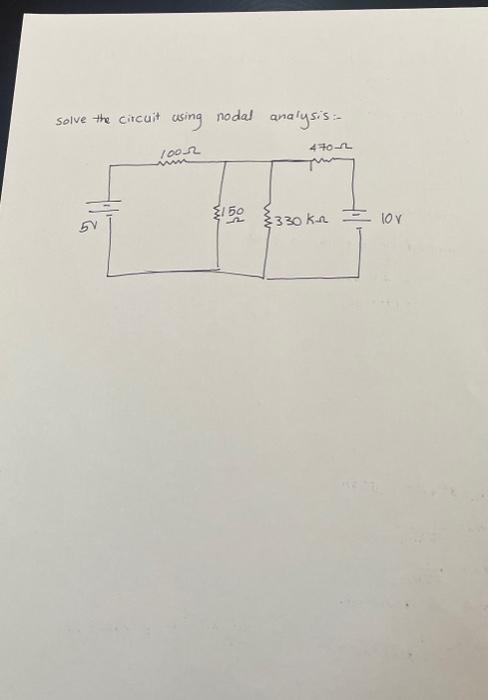 solve the circuit using nodal analysis:-
100Ω
470Ω
5V
150Ω
330KΩ
10V